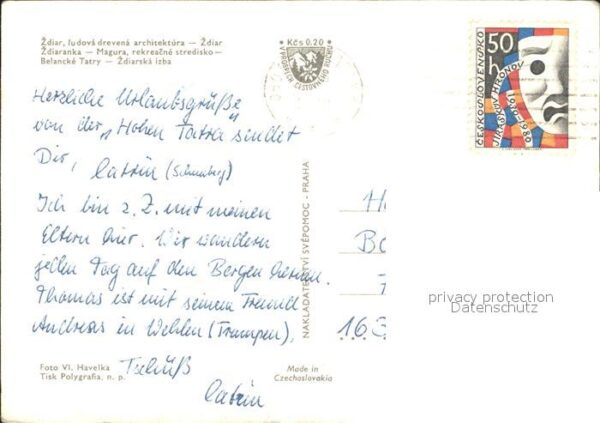 Ždiar, ľudová drevená architektúra — Ždiar
Ždiaranka — Magura, rekreačné stredisko —
Belanské Tatry — Ždiarska izba
Kčs 0,20
ČESKOSLOVENSKO
50 h
JIRÁSKŮV HRONOV
1930-1980
Herzliche Urlaubsgrüße
von der „Hohen Tatra" sendet
Dir,
Catrin
Ich bin z. Z. mit meinen
Eltern hier. Wir wandern
jeden Tag auf den Bergen herum.
Thomas ist mit seinem Freund
Andreas in Wehlen (Trampen).
Tschüß
Catrin
NAKLADATELSTVÍ SVÉPOMOC - PRAHA
H
Bo
163
privacy protection
Datenschutz
Foto Vl. Havelka
Tisk Polygrafia, n. p.
Made in
Czechoslovakia